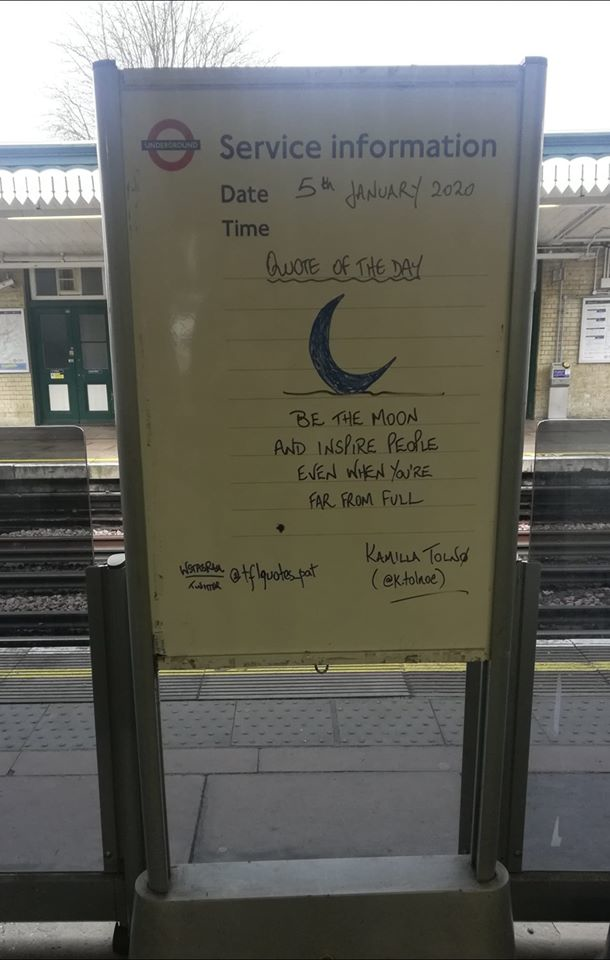 UNDERGROUND
Service information
Date 5th JANUARY 2020
Time
QUOTE OF THE DAY
BE THE MOON
AND INSPIRE PEOPLE
EVEN WHEN YOU'RE
FAR FROM FULL
KAMILLA TOLNØ
(@k.tolnoe)
INSTAGRAM
TWITTER
@tflquotes_pat